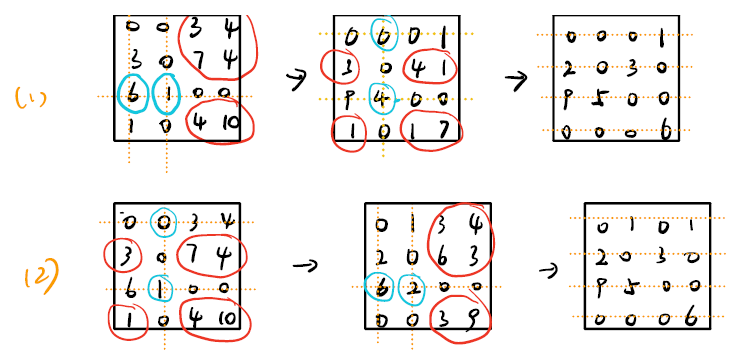 (1)
0 0 3 4
3 0 7 4
6 1 0 0
1 0 4 10
→
0 0 0 1
3 0 4 1
9 4 0 0
1 0 1 7
→
0 0 0 1
2 0 3 0
9 5 0 0
0 0 0 6
(2)
0 0 3 4
3 0 7 4
6 1 0 0
1 0 4 10
→
0 1 3 4
2 0 6 3
6 2 0 0
0 0 3 9
→
0 1 0 1
2 0 3 0
9 5 0 0
0 0 0 6